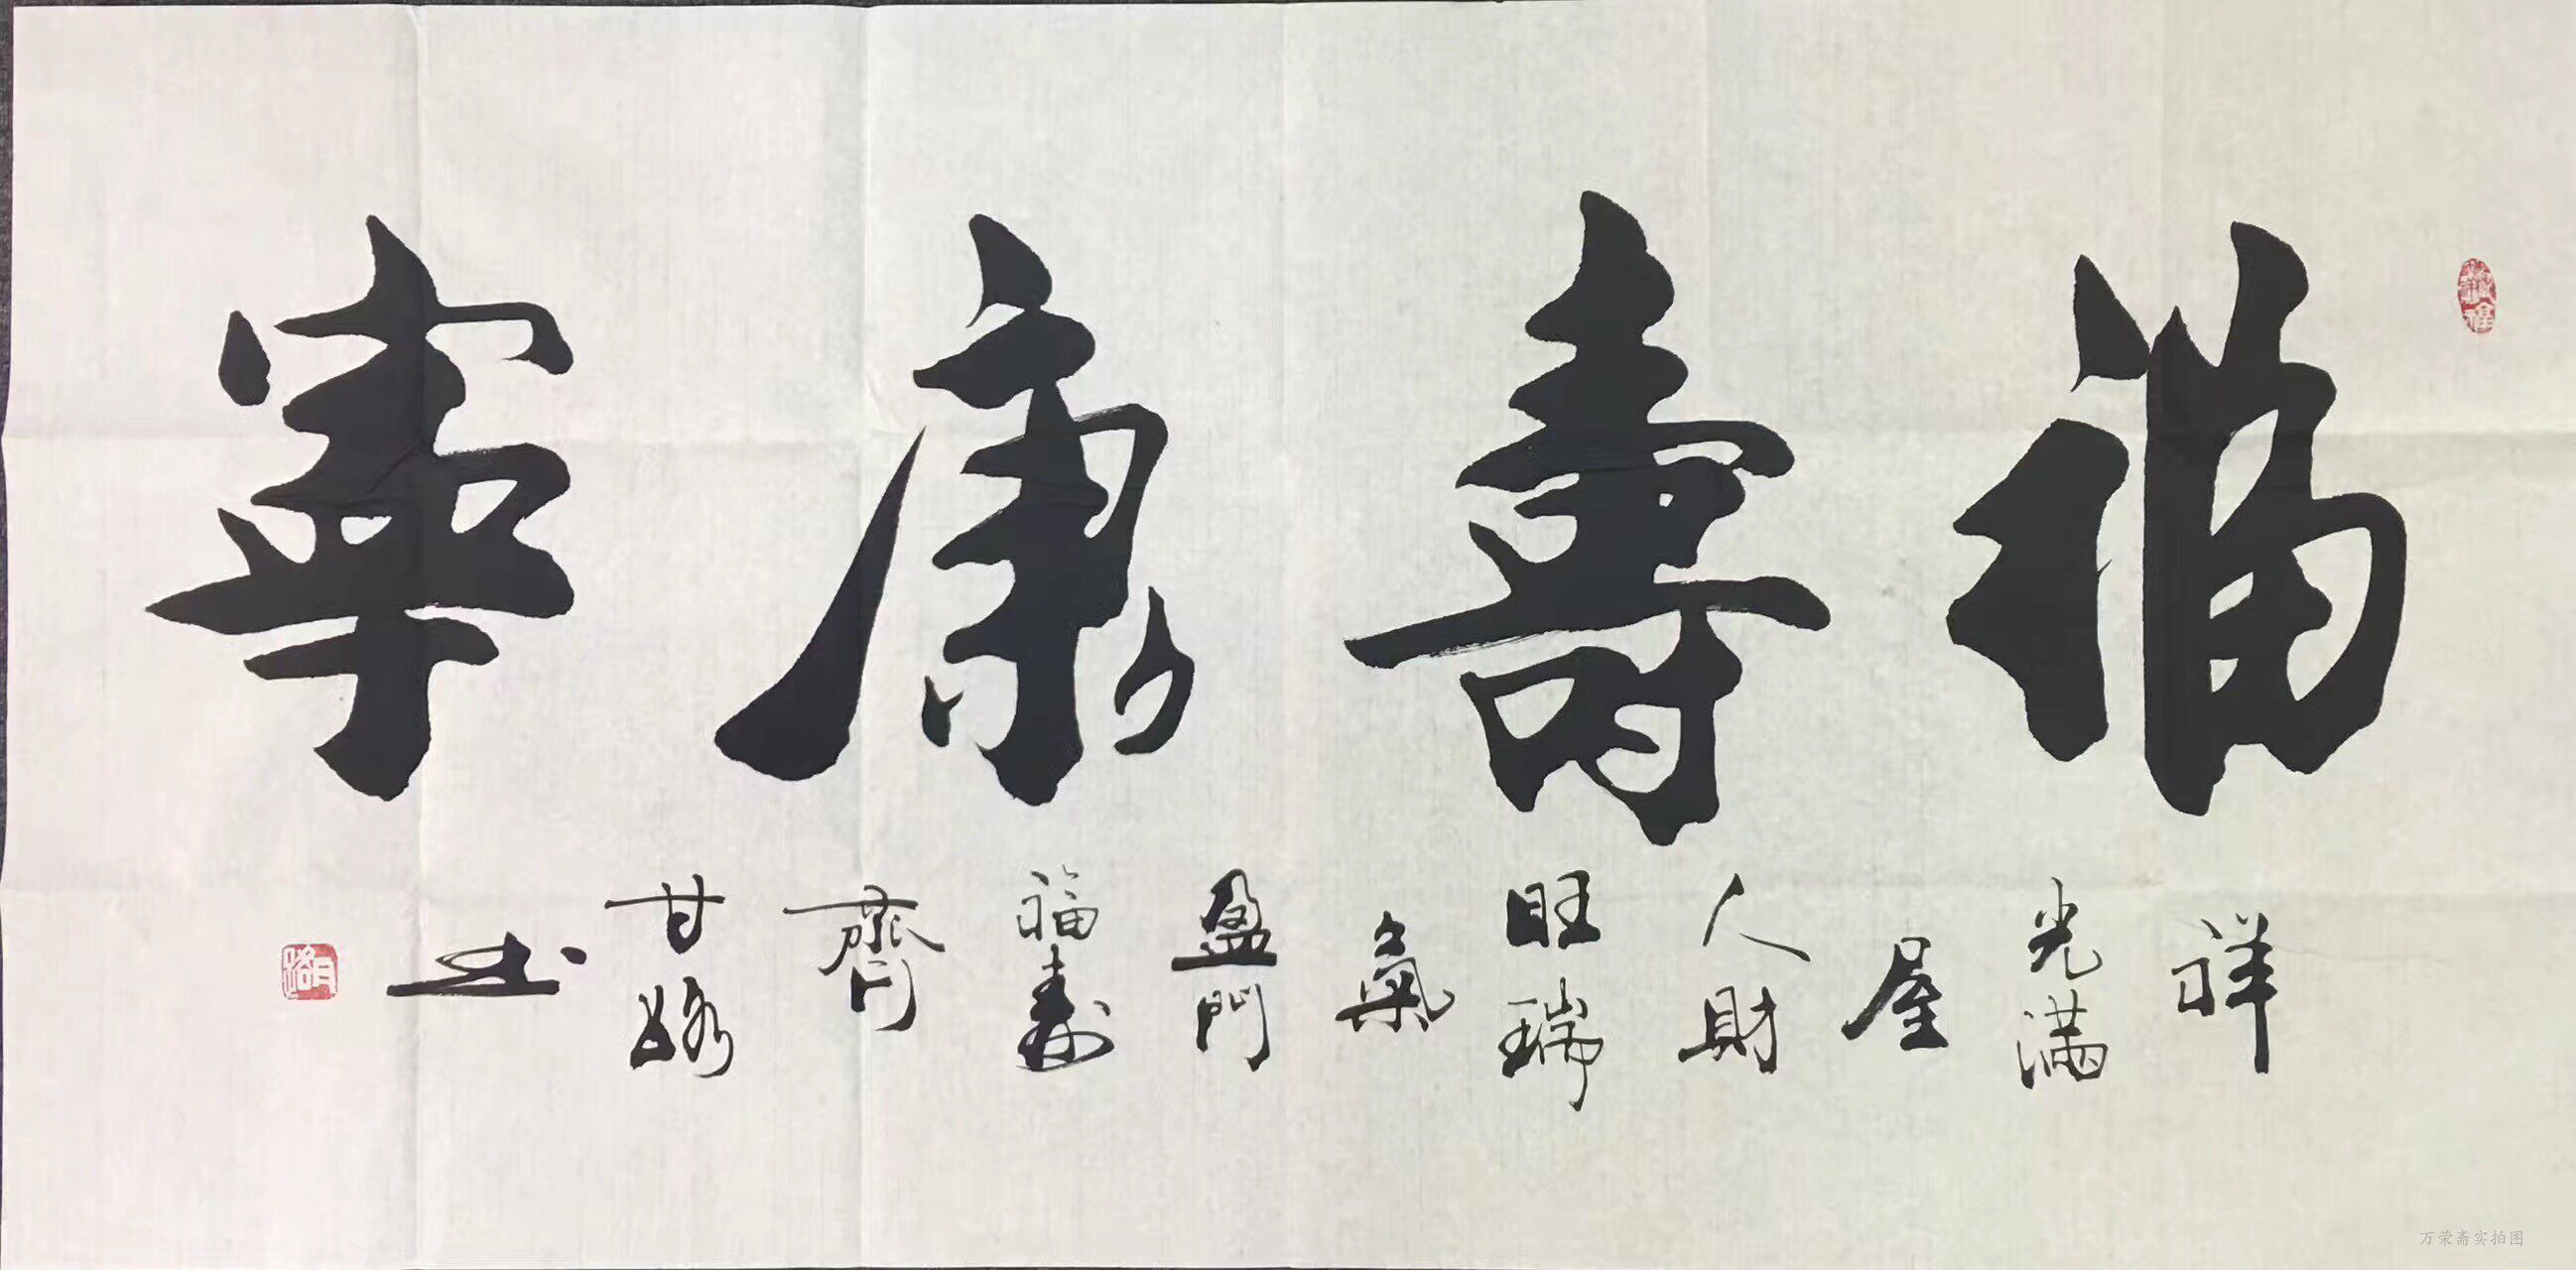 福壽康寧
祥
光满
屋
人財
旺瑞
氣
盈門
福寿
齊
甘
书
万荣斋实拍图